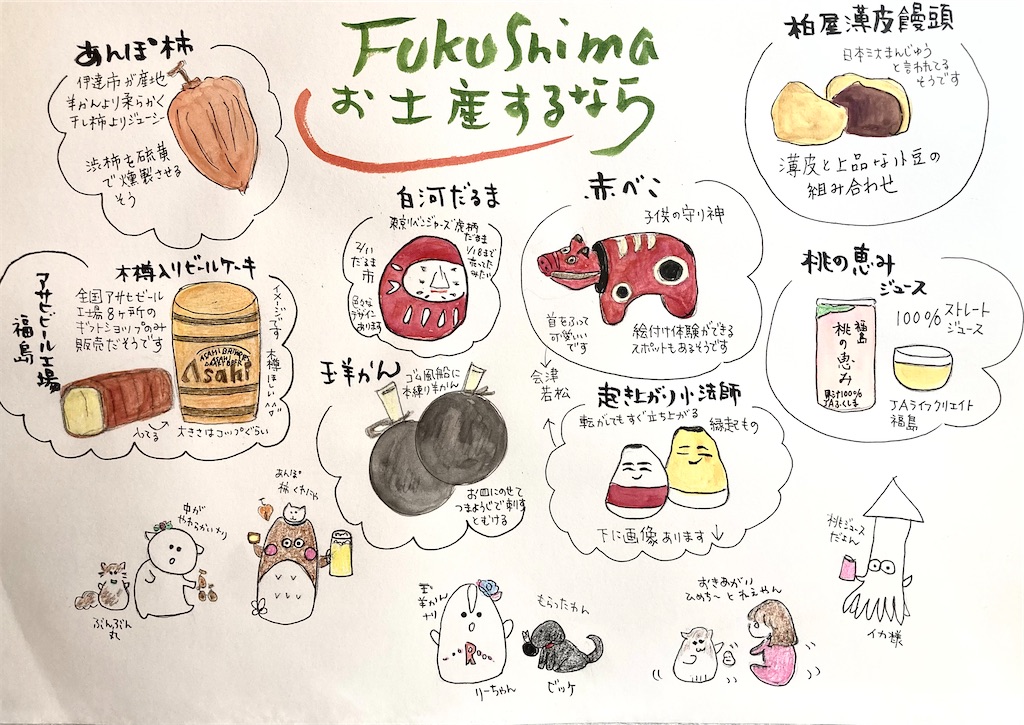 Fukushima
お土産するなら
あんぽ柿
伊達市が産地
羊かんより柔らかく
干し柿よりジューシー
渋柿を硫黄
で燻製させる
そう
柏屋薄皮饅頭
日本三大まんじゅう
と言われてる
そうです
薄皮と上品な小豆の
組み合わせ
白河だるま
東京リベンジャーズ 虎柄
だるま
1/18まで
売ってた
みたい
2/11
だるま
市
色々な
デザイン
あります
赤べこ
子供の守り神
首をふって
可愛いい
です
絵付け体験ができる
スポットもあるそうです
会津
若松
アサヒビール工場
福島
木樽入りビールケーキ
全国アサヒビール
工場8ヶ所の
ギフトショップのみ
販売だそうです
イメージです
木樽ほしい^^
ASAHI BREWERS
ASAHI
DRAFT BEER
Asahi
入ってる
大きさはコップぐらい
玉羊かん
ゴム風船に
本練り羊かん
お皿にのせて
つまようじで刺す
とむける
起き上がり小法師
転がしてもすぐ立ち上がる
縁起もの
下に画像あります
桃の恵み
ジュース
100%ストレート
ジュース
福島
桃の恵み
果汁100%
JAふくしま
JAライフクリエイト
福島
中が
やわらかいわり
ぶんぶん
丸
あんぽ
柿くれたにゃ
玉
羊かん
ナリ
R
りーちゃん
もらったわん
ビッケ
おきあがい
ひめち〜とれえやん
桃ジュース
だよん
イカ様